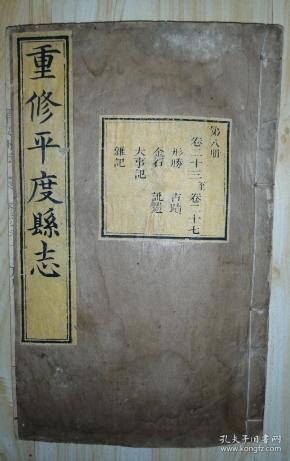 重修平度縣志
第八冊
卷二十三至卷二十七
形勝 古蹟
金石
大事記
雜記
孔夫子旧书网